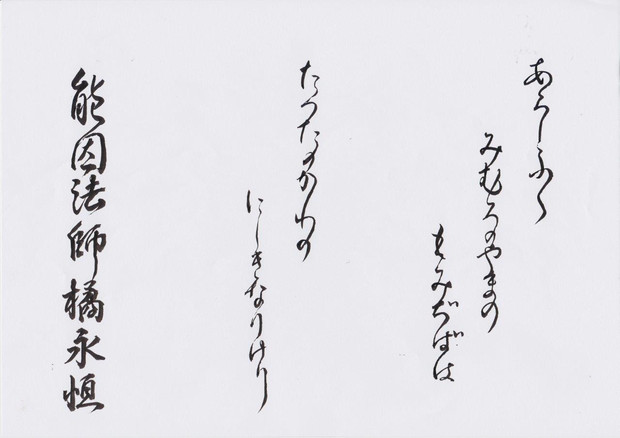 あらしふく
みむろのやまの
もみぢばは
たつたのかわの
にしきなりけり
能因法師橘永恒